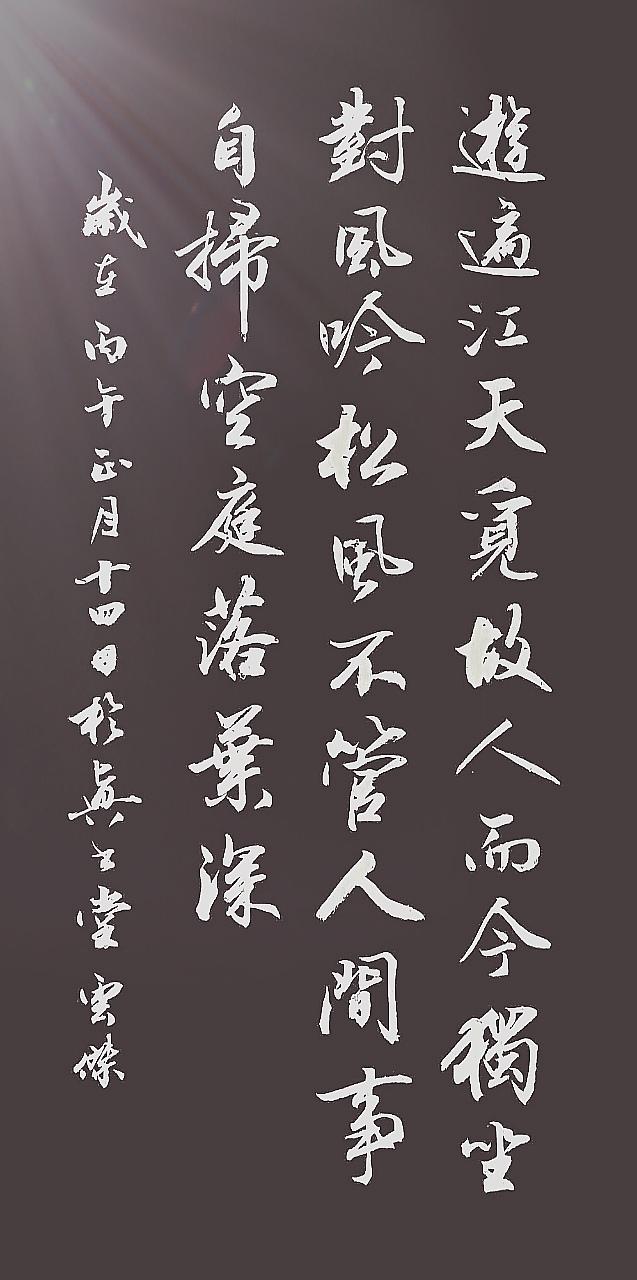 遊遍江天覓故人而今獨坐
對風吟松風不管人間事
自掃空庭落葉深
歲在丙午正月十四日於與之堂雲傑